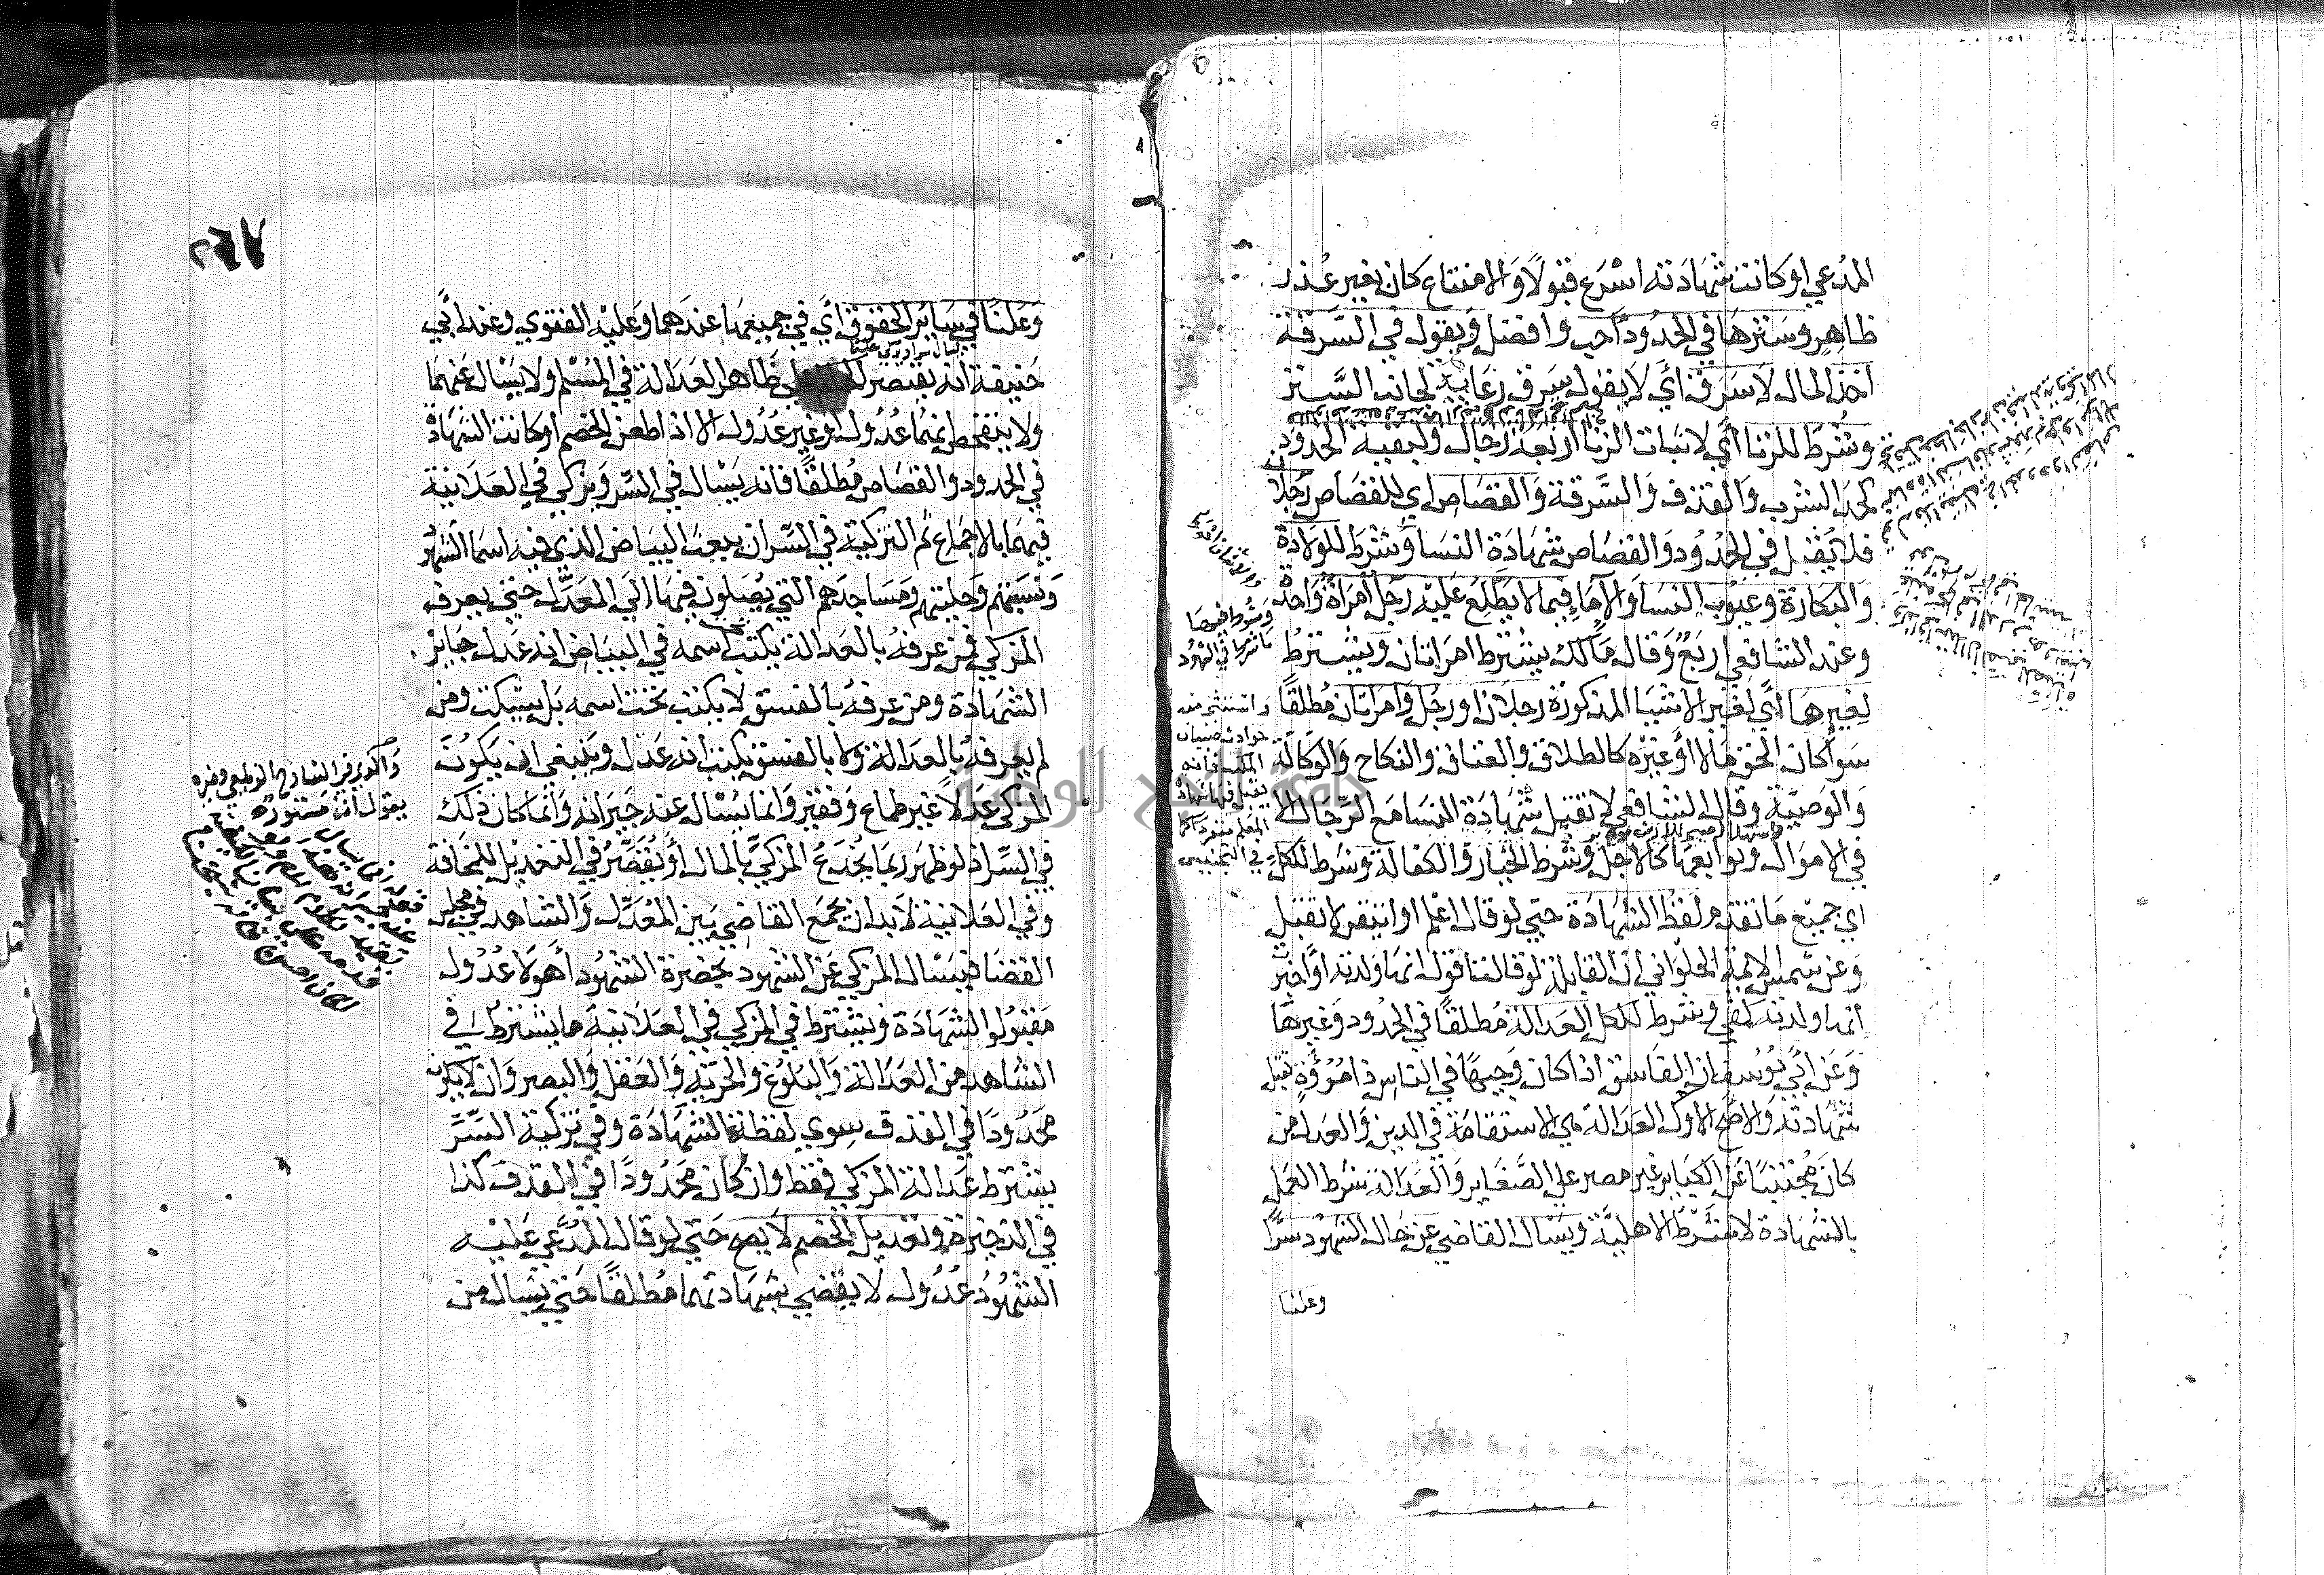 المدعي او كانت شهادته اسرع قبولا والامتناع كان بغير عذر
ظاهر وسترها في الحدود احب وافضل ويقول في السرقة
اخذ المال لا سرق اي لا يقول سرق رعاية لجانب الستر
وشرط للزنا اي لاثبات الزنا اربعة رجال ولبقية الحدود
كحد الشرب والقذف والسرقة والقصاص اي للقصاص رجلان
فلا يقبل في الحدود والقصاص شهادة النسا وشرط للولادة
والبكارة وعيوب النسا والاماء فيما لا يطلع عليه رجل امراة واحدة
وعند الشافعي اربع وقال مالك يشترط امراتان ويشترط
لغيرها اي لغير الاشيا المذكورة رجلان او رجل وامراتان مطلقا
سوا كان الحق مالا او غيره كالطلاق والعتاق والنكاح والوكالة
والوصية وقال الشافعي لا تقبل شهادة النسا مع الرجال الا
في الاموال وتوابعها كالاجل وشرط الخيار والكفالة وشرط للكل
اي جميع ما تقدم لفظ الشهادة حتي لو قال اعلم او اتيقن لا تقبل
وعن شمس الايمة الحلواني ان القابلة لو قالت اقول انها ولدته او اخبر
انها ولدته كفي وشرط للكل العدالة مطلقا في الحدود وغيرها
وعن ابي يوسف ان الفاسق اذا كان وجيها في الناس ذا مروة تقبل
شهادته والاصح الاول العدالة هي الاستقامة في الدين والعدل من
كان مجتنبا عن الكباير غير مصر علي الصغاير والعدالة شرط العمل
بالشهادة لا شرط الاهلية ويسال القاضي عن حال الشهود سرا
وعلنا
وشرط فيها
ما شرط في الشهود
٢٦٧
وعلنا في سائر الحقوق اي في جميعها عندهما وعليه الفتوي وعند ابي
حنيفة انه يقتصر علي ظاهر العدالة في المسلم ولا يسال عنهما
ولا يتفحص انهما عدول او غير عدول الا اذا طعن الخصم او كانت الشهادة
في الحدود والقصاص مطلقا فانه يسال في السر ويزكي في العلانية
فيهما بالاجماع ثم التزكية في السر ان يبعث البياض الذي فيه اسما الشهود
ونسبهم وحليتهم ومساجدهم التي يصلون فيها الي المعدل حتي يعرف
المزكي فمن عرفه بالعدالة يكتب تحت اسمه في البياض انه عدل جايز
الشهادة ومن عرفه بالفسق لا يكتب تحت اسمه بل يسكت ومن
لم يعرفه بالعدالة ولا بالفسق يكتب انه عدل وينبغي ان يكون
المزكي عدلا غير طماع وفقير وانما يساله عند جيرانه وانما كان ذلك
في السر اذ لو ظهر ربما يخدع المزكي بالمال او يقصر في التعديل للمخافة
وفي العلانية لا بد ان يجمع القاضي بين المعدل والشاهد في مجلس
القضا فيسال المزكي عن الشهود بحضرة الشهود اهولا عدول
مقبولوا الشهادة ويشترط في المزكي في العلانية ما يشترط في
الشاهد من العدالة والبلوغ والحرية والعقل والبصر وان لا يكون
محدودا في القذف سوي لفظة الشهادة وفي تزكية السر
يشترط عدالة المزكي فقط وان كان محدودا في القذف كذا
في الذخيرة وتعديل الخصم لا يصح حتي لو قال المدعي عليه
الشهود عدول لا يقضي بشهادتهما مطلقا حتي يسال من